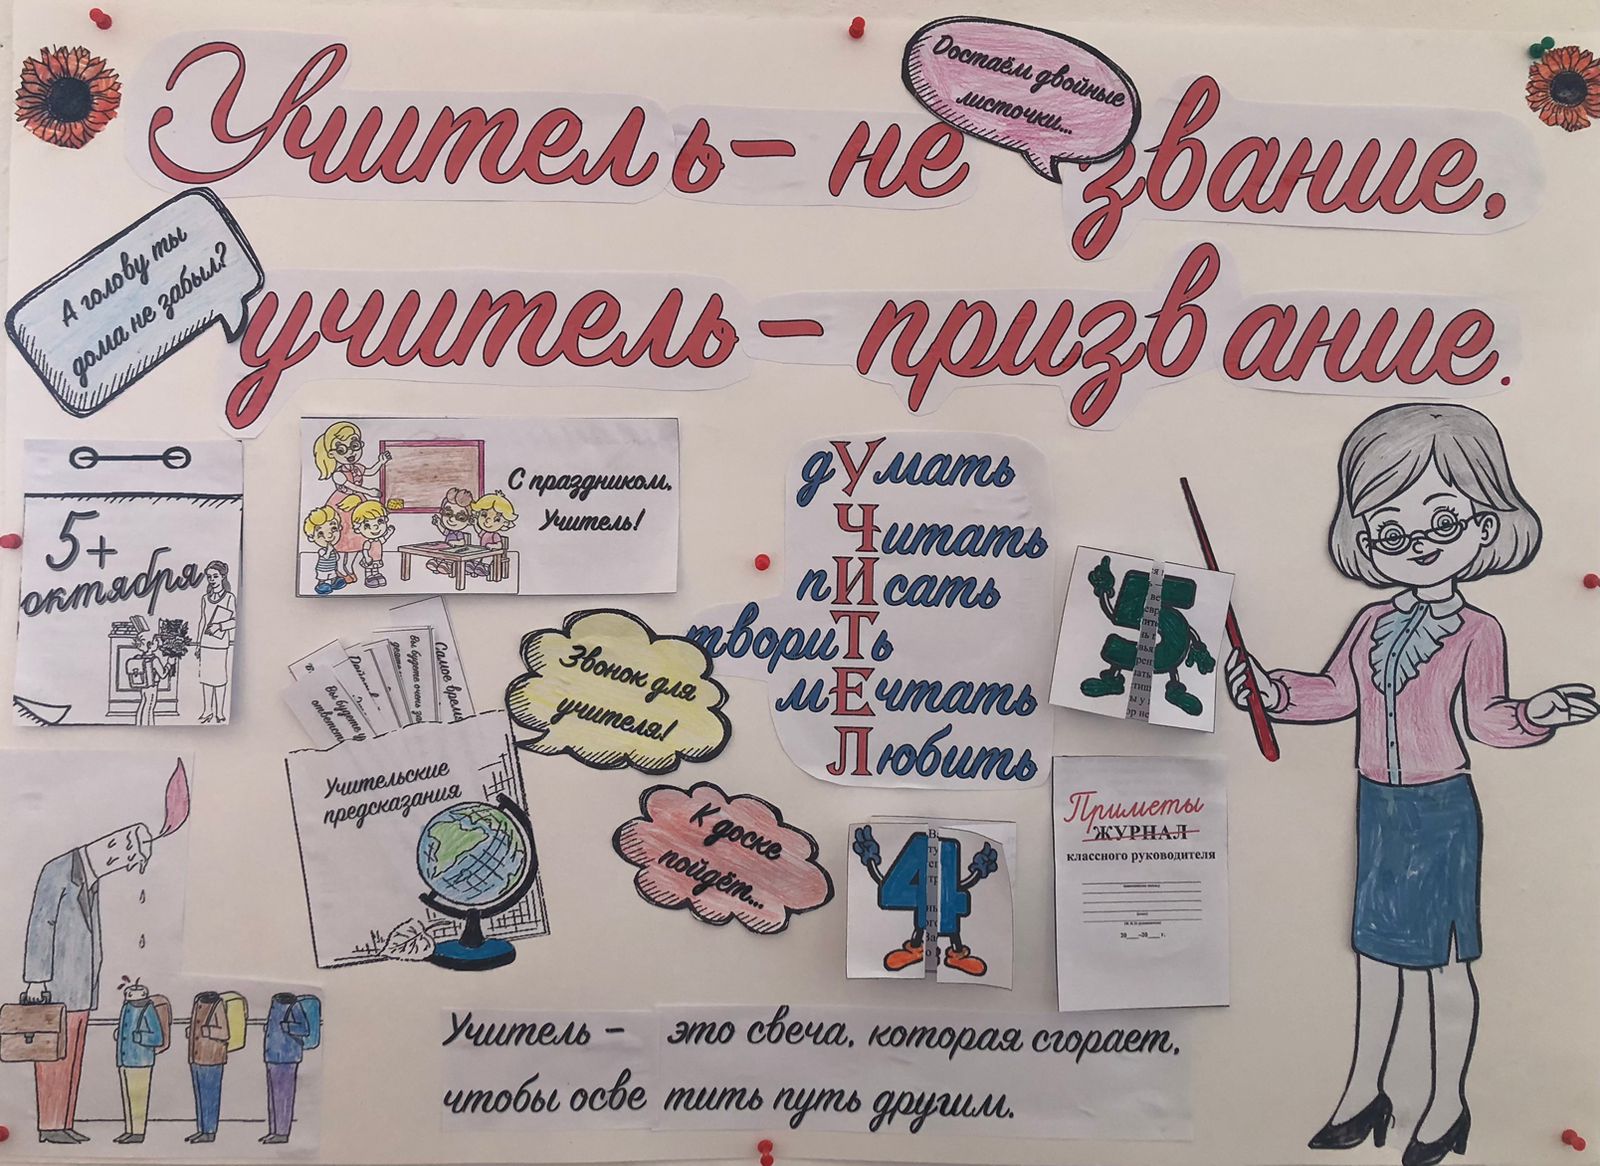 Учитель - не звание,
учитель - призвание.
Достаём двойные
листочки...
А голову ты
дома не забыл?
5+
октября
С праздником,
Учитель!
дУмать
Читать
пИсать
твориТь
мЕчтать
Любить
5
Самое время
Вы будете очень
Вы будете
Учительские
предсказания
Звонок для
учителя!
К доске
пойдёт...
4
Приметы
ЖУРНАЛ
классного руководителя
20___-20___ г.
Учитель - это свеча, которая сгорает,
чтобы осветить путь другим.